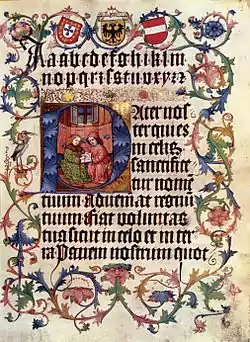 Aabcdefghiklm
nopqrꝛſstuvxyz
Pater noſ
ter qui es
in celis
ſanctifice
tur nomē
tuum adueniat regnū
tuum Fiat voluntas
tua ſicut in celo et in ter
ra Panem noſtrum quot